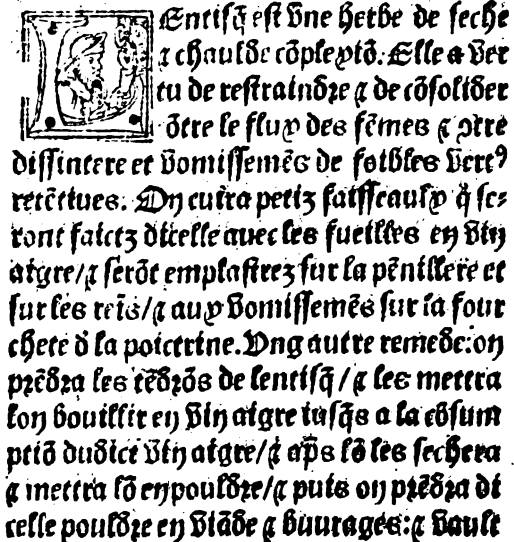 LEntisq̄ est vne herbe de seche
⁊ chaulde cōplexiō. Elle a ver
tu de restraindre ⁊ de cōsolider
ōtre le flux des fēmes ⁊ ꝯtre
dissintere et vomissemēs de foibles vertꝰ
retētiues. On cuira petiz faisseaulx q̄ se⸗
ront faictz dicelle auec les fueilles en vin
aigre/⁊ serōt emplastrez sur la pēnillere et
sur les reīs/⁊ aux vomissemēs sur la four
chete d̄ la poictrine. Vng autre remede: on
prēdra les tēdrōs de lentisq̄ / ⁊ les mettra
lon bouillir en vin aigre iusq̄s a la cōsum
ptiō dudict vin aigre/⁊ ap̄s lō les sechera
⁊ mettra lō en pouldre/⁊ puis on prēdra di
celle pouldre en viāde ⁊ buurages: ⁊ vault